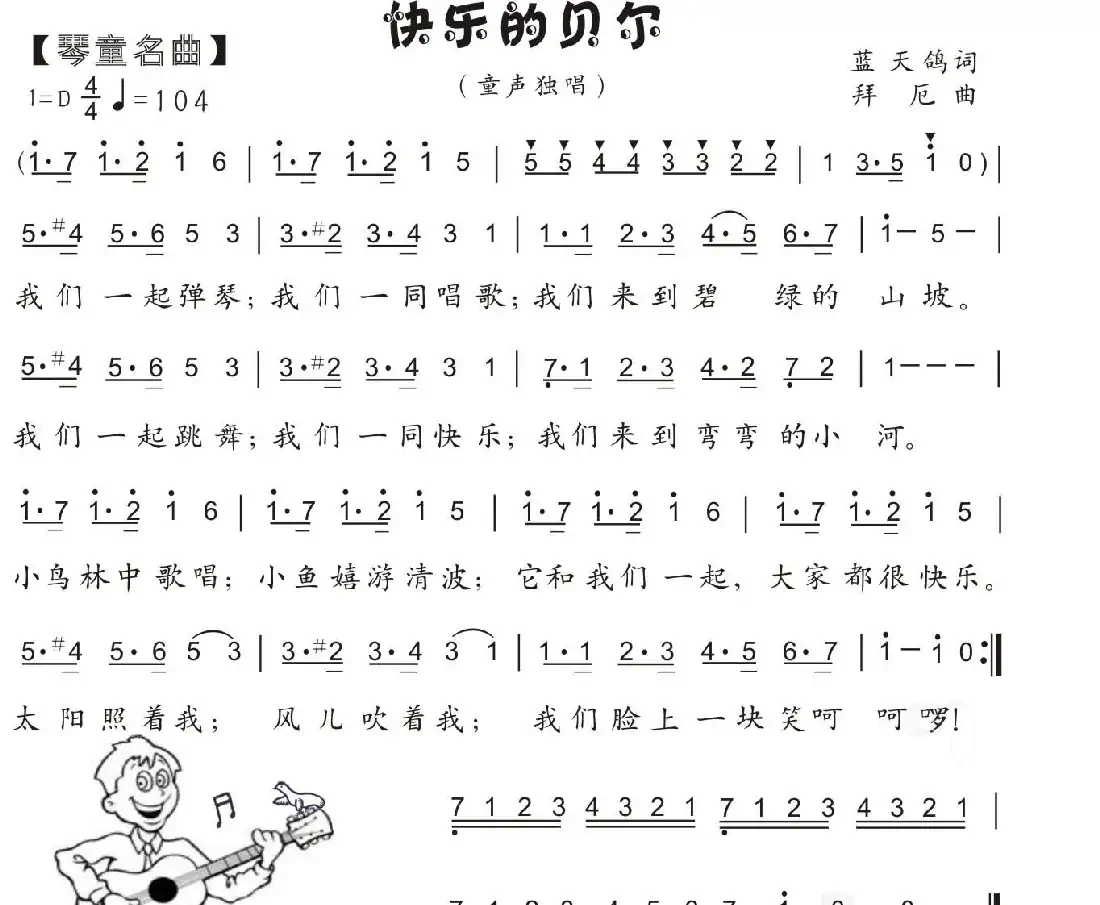 快乐的贝尔
【琴童名曲】
(童声独唱)
蓝天鸽词
1=D 4/4 ♩=104
拜 厄 曲
(i·7 i·2̇ i 6 | i·7 i·2̇ i 5 | 5 5 4 4 3 3 2 2 | 1 3·5 i 0) |
5·#4 5·6 5 3 | 3·#2 3·4 3 1 | 1·1 2·3 4·5 6·7 | i– 5– |
我们 一起弹琴; 我们 一同唱歌; 我们 来到碧 绿的 山坡。
5·#4 5·6 5 3 | 3·#2 3·4 3 1 | 7̣·1 2·3 4·2 7̣ 2 | 1––– |
我们 一起跳舞; 我们 一同快乐; 我们来到弯弯 的小 河。
i·7 i·2̇ i 6 | i·7 i·2̇ i 5 | i·7 i·2̇ i 6 | i·7 i·2̇ i 5 |
小鸟林中歌唱; 小鱼嬉游清波; 它和我们一起, 大家都很快乐。
5·#4 5·6 5 3 | 3·#2 3·4 3 1 | 1·1 2·3 4·5 6·7 | i– i 0 :‖
太阳照着我; 风儿吹着我; 我们脸上一块笑呵 呵啰!
7̣ 1 2 3 4 3 2 1 7̣ 1 2 3 4 3 2 1 |